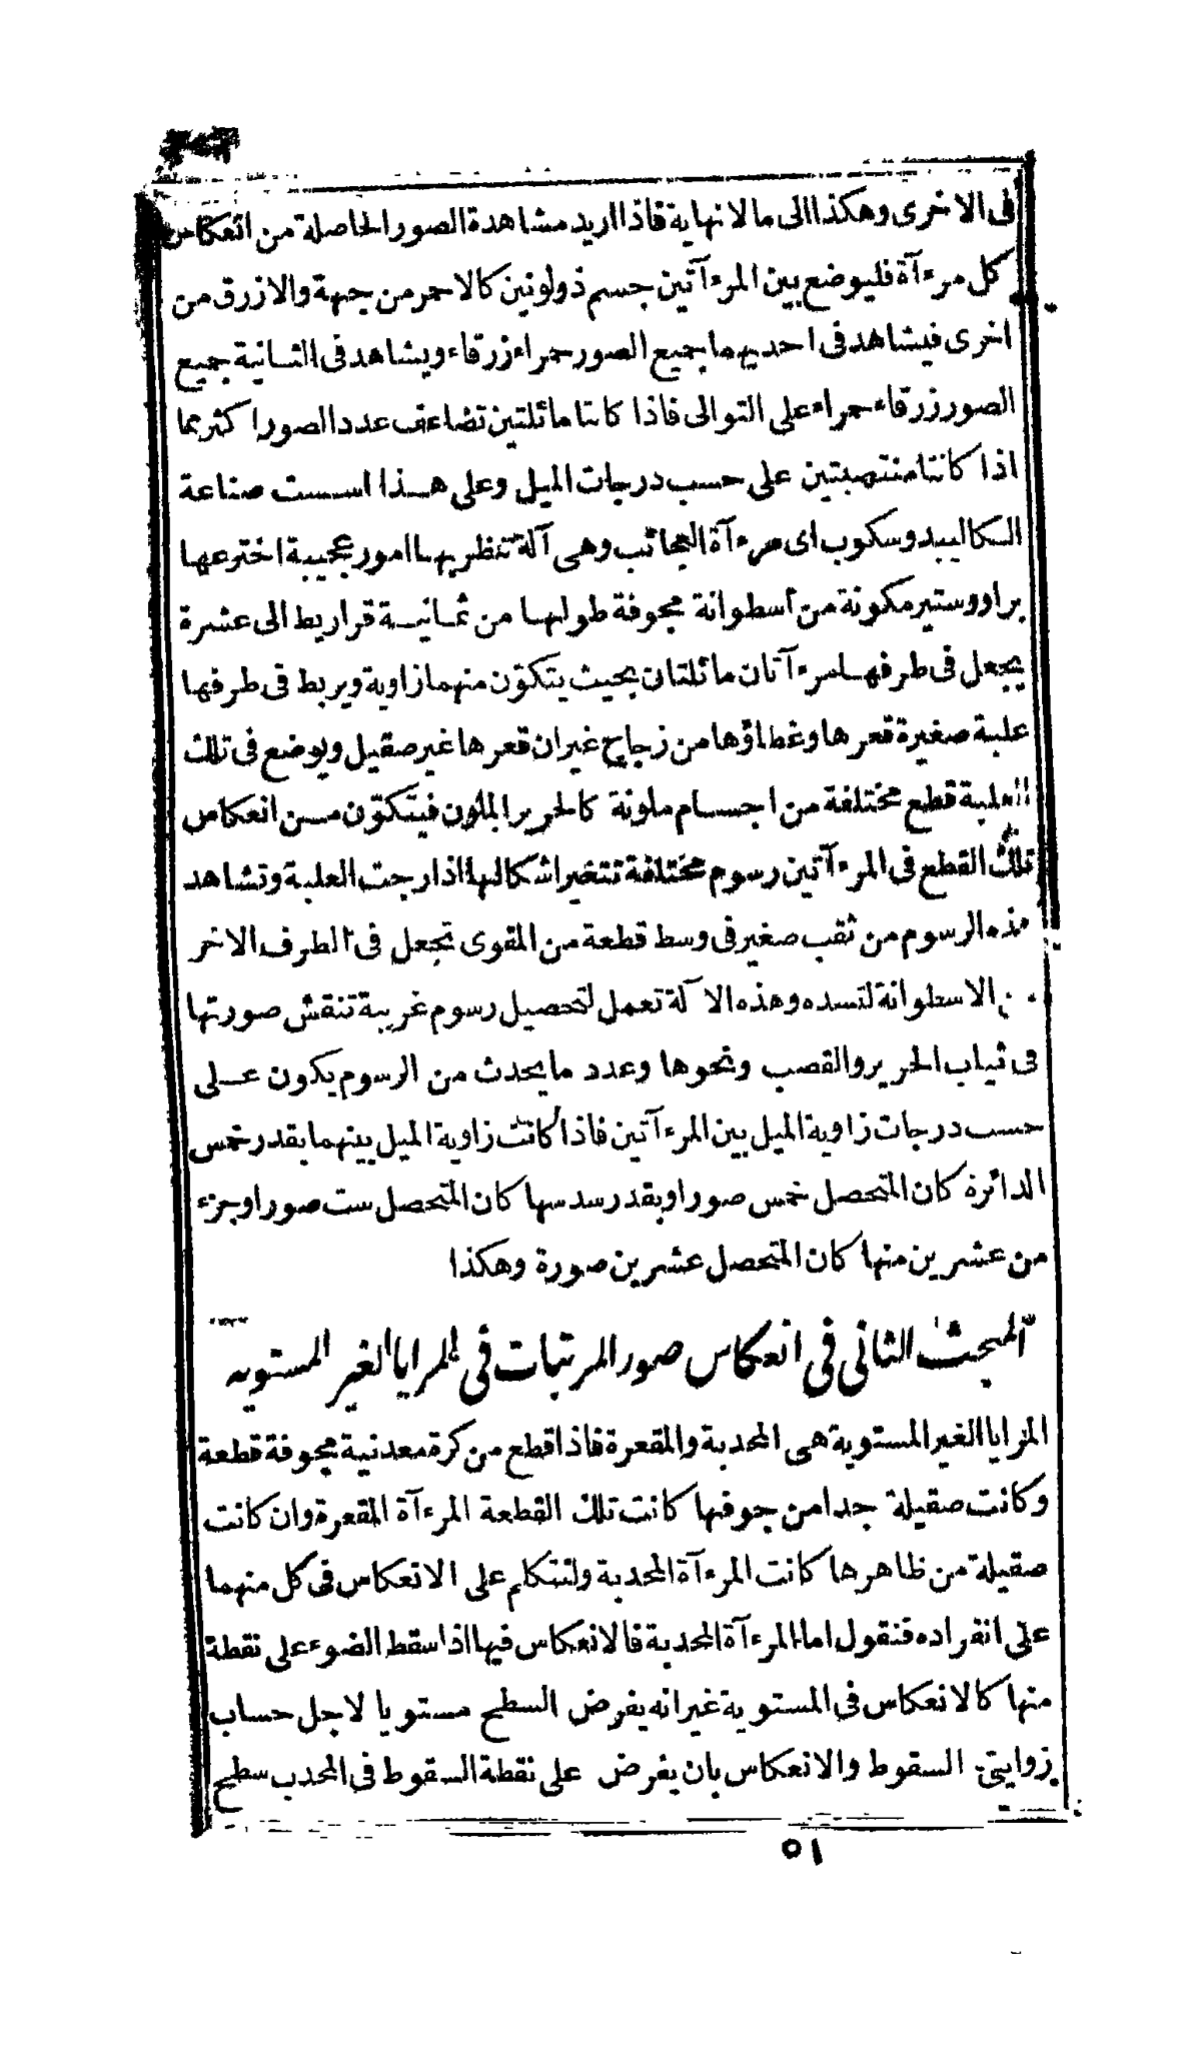 فى الاخرى وهكذا الى ما لا نهاية فاذا اريد مشاهدة الصور الحاصلة من انعكاس
كل مرءآة فليوضع بين المرءآتين جسم ذولونين كالاحمر من جهة والازرق من
اخرى فيشاهد فى احديهما جميع الصور حمراء زرقاء ويشاهد فى الثانية جميع
الصور زرقاء حمراء على التوالى فاذا كانتا مائلتين تضاعف عدد الصور اكثر مما
اذا كانتا منتصبتين على حسب درجات الميل وعلى هذا اسست صناعة
الكاليبدوسكوب اى مرءآة العجائب وهى آلة تنظر بها امور عجيبة اخترعها
براووستير مكونة من اسطوانة مجوفة طولها من ثمانية قراريط الى عشرة
يجعل فى طرفها مرءآتان مائلتان بحيث يتكوّن منهما زاوية ويربط فى طرفها
علبة صغيرة قعرها وغطاؤها من زجاج غيران قعرها غير صقيل ويوضع فى تلك
العلبة قطع مختلفة من اجسام ملونة كالحرير الملون فيتكوّن من انعكاس
تلك القطع فى المرءآتين رسوم مختلفة تتغير اشكالها اذا رجت العلبة وتشاهد
هذه الرسوم من ثقب صغير فى وسط قطعة من المقوى تجعل فى الطرف الاخر
من الاسطوانة لتسده وهذه الالآلة تعمل لتحصيل رسوم غريبة تنقش صورتها
فى ثياب الحرير والقصب ونحوها وعدد ما يحدث من الرسوم يكون على
حسب درجات زاوية الميل بين المرءآتين فاذا كانت زاوية الميل بينهما بقدر خمس
الدائرة كان المتحصل خمس صور او بقدر سدسها كان المتحصل ست صور او جزء
من عشرين منها كان المتحصل عشرين صورة وهكذا
المبحث الثانى فى انعكاس صور المرئيات فى المرايا الغير المستويه
المرايا الغير المستوية هى المحدبة والمقعرة فاذا قطع من كرة معدنية مجوفة قطعة
وكانت صقيلة جدا من جوفها كانت تلك القطعة المرءآة المقعرة وان كانت
صقيلة من ظاهرها كانت المرءآة المحدبة ولنتكلم على الانعكاس فى كل منهما
على انفراده فنقول اما المرءآة المحدبة فالانعكاس فيها اذا سقط الضوء على نقطة
منها كالانعكاس فى المستوية غيرانه يفرض السطح مستويا لاجل حساب
زوايتى السقوط والانعكاس بان يفرض على نقطة السقوط فى المحدب سطح
٥١